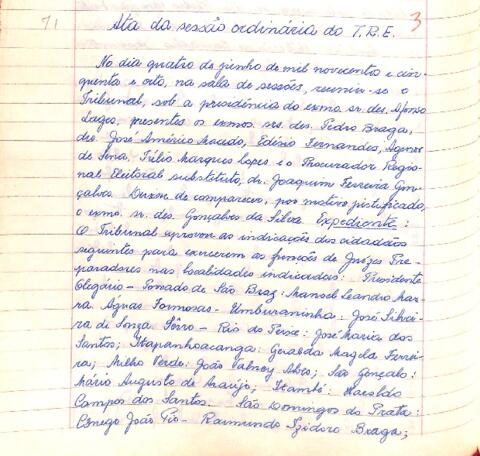 71
Ata da sessão ordinária do T.R.E.
3
No dia quatro de junho de mil novecentos e cin-
quenta e oito, na sala de sessões, reuniu-se o
Tribunal, sob a presidência do exmo. sr. des. Afonso
Lages, presentes os exmos. srs. des. Pedro Braga,
drs. José Américo Macedo, Edésio Fernandes, Agenor
de Sena, Túlio Marques Lopes e o Procurador Regio-
nal Eleitoral substituto, dr. Joaquim Ferreira Gon-
çalves. Deixou de comparecer, por motivo justificado,
o exmo. sr. des. Gonçalves da Silva. Expediente:
O Tribunal aprovou as indicações dos cidadãos
seguintes para exercerem as funções de Juízes Pre-
paradores nas localidades indicadas: Presidente
Olegário - Ponto de São Braz: Manoel Leandro Mar-
ra. Águas Formosas - Umburaninha: José Silvei-
ra de Souza. Sêrro - Rio do Peixe: José Maria dos
Santos; Itapanhoacanga: Geralda Magela Ferrei-
ra; Milho Verde: João Valney Alves; São Gonçalo:
Mário Augusto de Araújo; Itambé: Haroldo
Campos dos Santos. São Domingos do Prata:
Cônego João Pio - Raimundo Izidoro Braga;